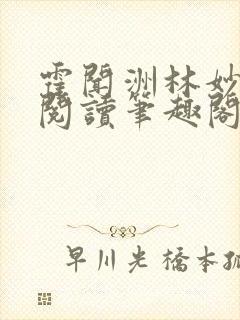 霍聞洲林妙
閱讀筆趣閣
早川光橋本孤